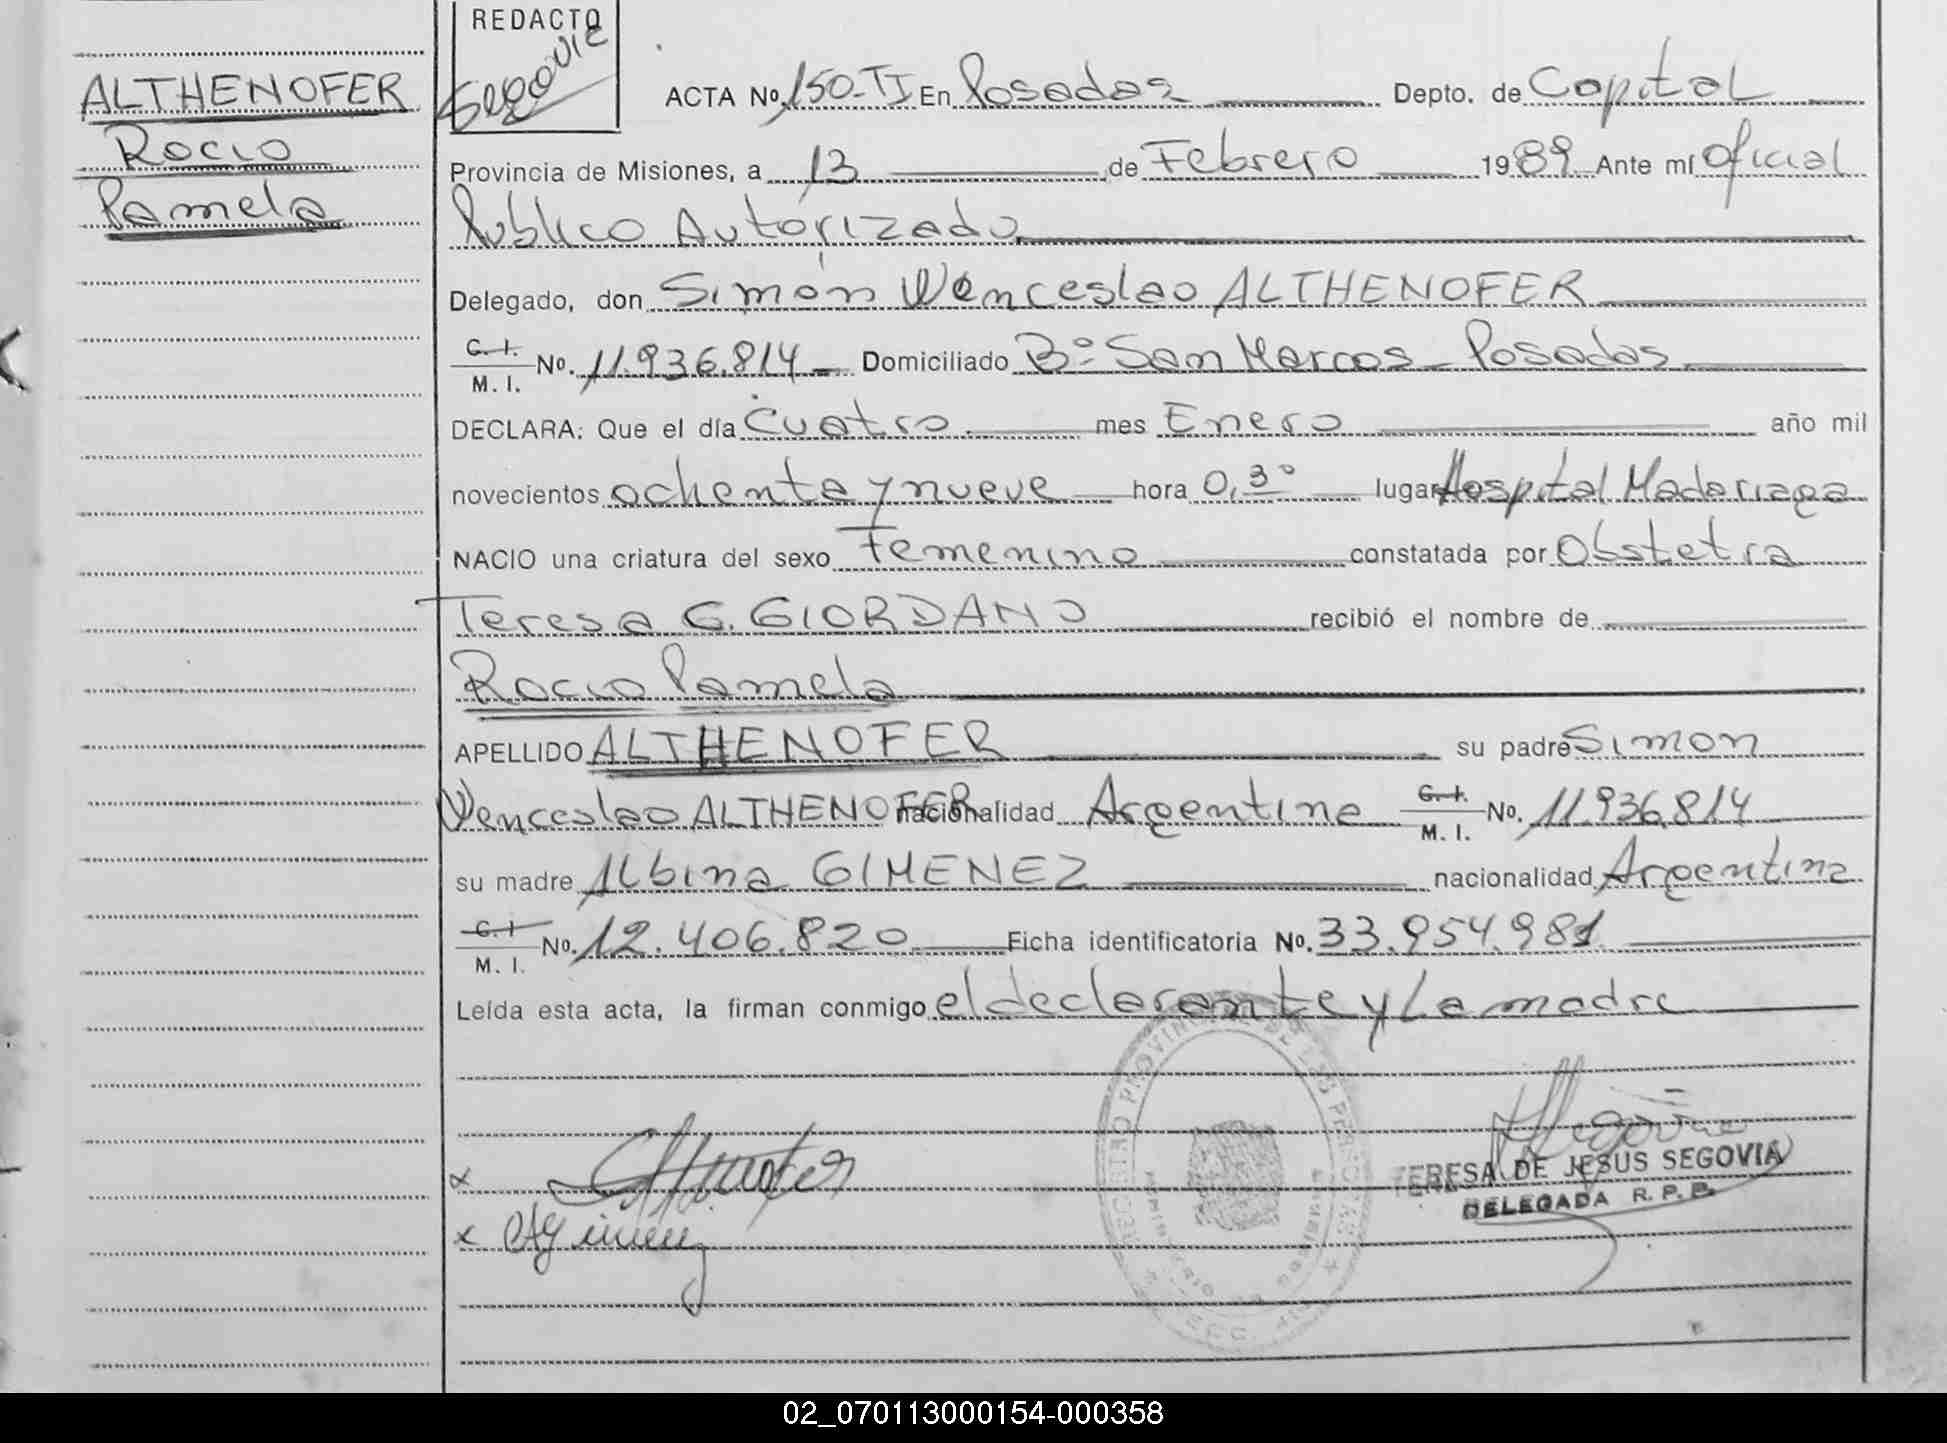 ALTHENOFER
Rocio
Pamela
REDACTO
Segovia
ACTA No. 150-TI En Posadas Depto. de Capital
Provincia de Misiones, a 13 de Febrero 1989 Ante mí Oficial
Publico Autorizado
Delegado, don Simón Wenceslao ALTHENOFER
C. I. M. I. No. 11.936.814 Domiciliado Bº San Marcos - Posadas
DECLARA: Que el día Cuatro mes Enero año mil
novecientos ochenta y nueve hora 0,30 lugar Hospital Madariaga
NACIO una criatura del sexo Femenino constatada por Obstetra
Teresa G. GIORDANO recibió el nombre de
Rocio Pamela
APELLIDO ALTHENOFER su padre Simon
Wenceslao ALTHENOFER nacionalidad Argentina C. I. M. I. No. 11.936.814
su madre Albina GIMENEZ nacionalidad Argentina
C. I. M. I. No. 12.406.820 Ficha identificatoria No. 33.954.981
Leída esta acta, la firman conmigo el declarante y la madre
REGISTRO PROVINCIAL DE LAS PERSONAS
x
x
TERESA DE JESUS SEGOVIA
DELEGADA R. P. P.
02_070113000154-000358